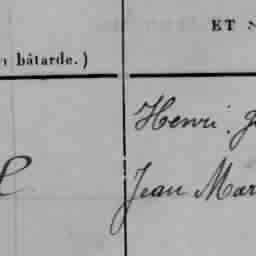 ET
n bâtarde.)
Henri. J
Jean Mar